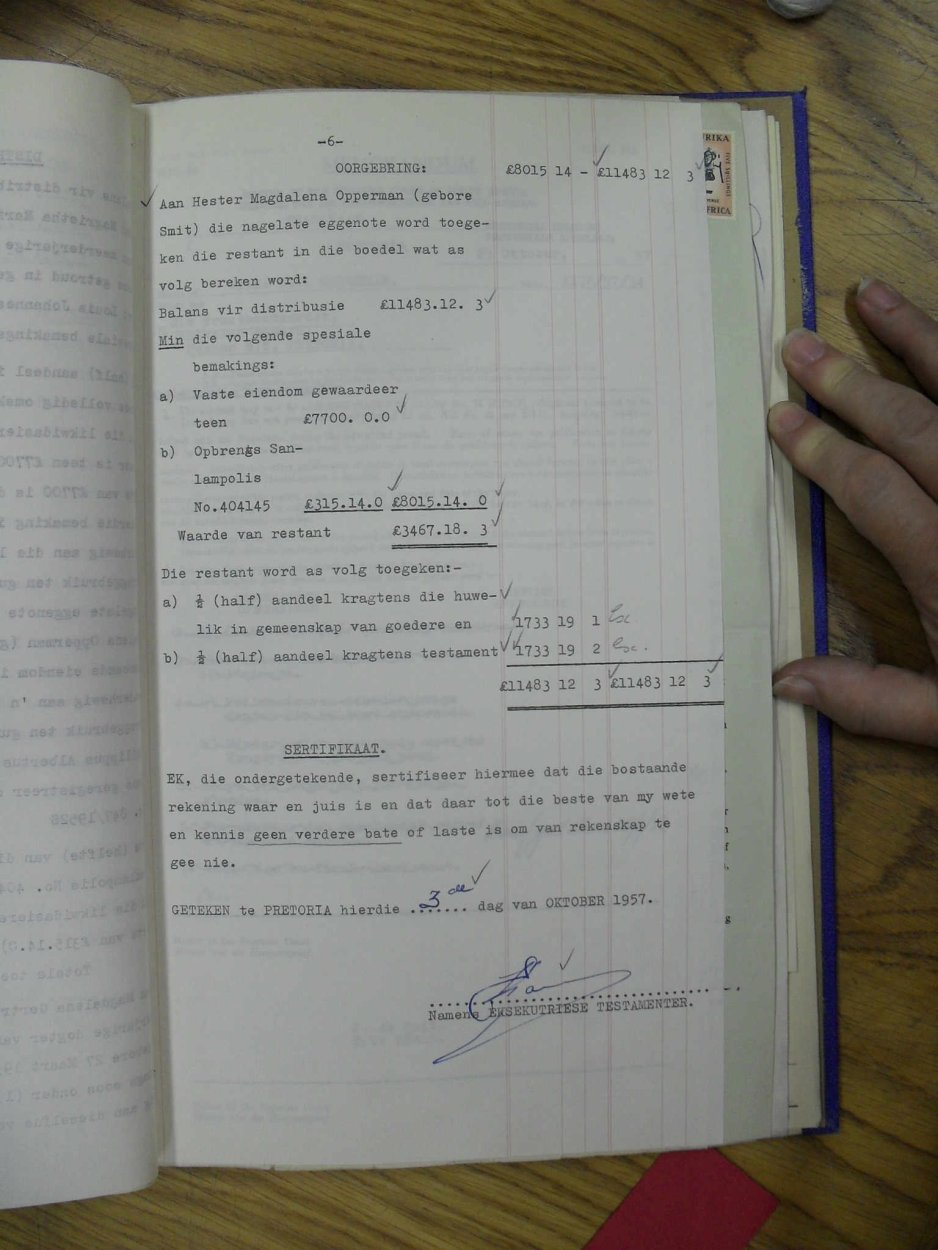 -6-
OORGEBRING: £8015 14 - £11483 12 3
Aan Hester Magdalena Opperman (gebore
Smit) die nagelate eggenote word toege-
ken die restant in die boedel wat as
volg bereken word:
Balans vir distribusie £11483.12. 3
Min die volgende spesiale
bemakings:
a) Vaste eiendom gewaardeer
teen £7700. 0.0
b) Opbrengs San-
lampolis
No.404145 £315.14.0 £8015.14. 0
Waarde van restant £3467.18. 3
Die restant word as volg toegeken:-
a) ½ (half) aandeel kragtens die huwe-
lik in gemeenskap van goedere en 1733 19 1
b) ½ (half) aandeel kragtens testament 1733 19 2
£11483 12 3 £11483 12 3
SERTIFIKAAT.
EK, die ondergetekende, sertifiseer hiermee dat die bostaande
rekening waar en juis is en dat daar tot die beste van my wete
en kennis geen verdere bate of laste is om van rekenskap te
gee nie.
GETEKEN te PRETORIA hierdie ..3de.. dag van OKTOBER 1957.
Namens EKSEKUTRIESE TESTAMENTER.